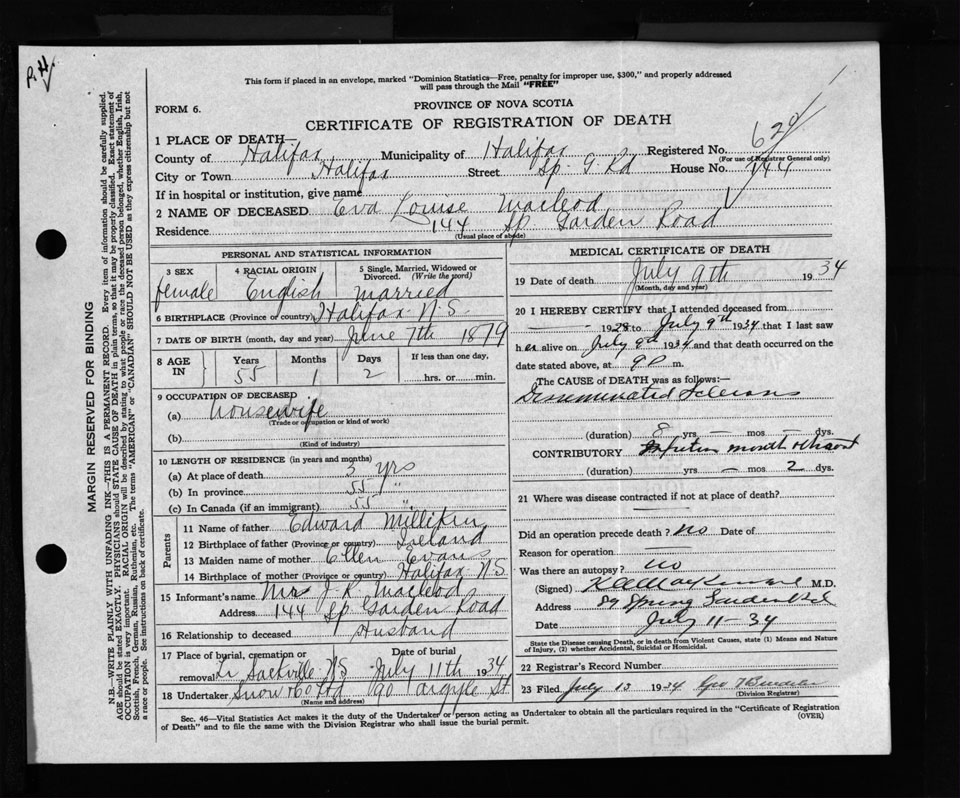 P.H.
This form if placed in an envelope, marked "Dominion Statistics—Free, penalty for improper use, $300," and properly addressed
will pass through the Mail "FREE"
FORM 6.
PROVINCE OF NOVA SCOTIA
CERTIFICATE OF REGISTRATION OF DEATH
1 PLACE OF DEATH—
Registered No. 624
(For use of Registrar General only)
County of Halifax Municipality of Halifax
City or Town Halifax Street Sp. G. Rd House No. 144
If in hospital or institution, give name
2 NAME OF DECEASED Eva Louise Macleod
Residence 144 Sp. Garden Road
(Usual place of abode)
PERSONAL AND STATISTICAL INFORMATION
3 SEX 4 RACIAL ORIGIN 5 Single, Married, Widowed or
Divorced. (Write the word)
female English married
6 BIRTHPLACE (Province or country) Halifax N.S.
7 DATE OF BIRTH (month, day and year) June 7th 1879
8 AGE IN Years Months Days If less than one day,
55 1 2 hrs. or min.
9 OCCUPATION OF DECEASED
(a) Housewife
(Trade or occupation or kind of work)
(b)
(Kind of industry)
10 LENGTH OF RESIDENCE (in years and months)
(a) At place of death 3 yrs
(b) In province 55 "
(c) In Canada (if an immigrant) 55 "
Parents
11 Name of father Edward Milliken
12 Birthplace of father (Province or country) Ireland
13 Maiden name of mother Ellen Evans
14 Birthplace of mother (Province or country) Halifax N.S.
15 Informant's name J. R. Macleod
Address 144 Sp. Garden Road
16 Relationship to deceased Husband
17 Place of burial, cremation or Date of burial
removal Lr Sackville N.S. July 11th 1934
18 Undertaker Snow & Co Ltd 90 Argyle St
(Name and address)
MEDICAL CERTIFICATE OF DEATH
19 Date of death July 9th 1934
(Month, day and year)
20 I HEREBY CERTIFY that I attended deceased from
1928 to July 9th 1934 that I last saw
her alive on July 9th 1934 and that death occurred on the
date stated above, at 9 P. m.
The CAUSE of DEATH was as follows:—
Disseminated Sclerosis
(duration) 8 yrs — mos — dys.
CONTRIBUTORY
(duration) yrs — mos 2 dys.
21 Where was disease contracted if not at place of death?
Did an operation precede death? no Date of
Reason for operation
Was there an autopsy? no
(Signed) M.D.
Address 89 Spring Garden Rd
Date July 11-34
State the Disease causing Death, or in death from Violent Causes, state (1) Means and Nature
of Injury, (2) whether Accidental, Suicidal or Homicidal.
22 Registrar's Record Number
23 Filed July 13 1934
(Division Registrar)
Sec. 46—Vital Statistics Act makes it the duty of the Undertaker or person acting as Undertaker to obtain all the particulars required in the "Certificate of Registration
of Death" and to file the same with the Division Registrar who shall issue the burial permit. (OVER)
MARGIN RESERVED FOR BINDING
N.B.—WRITE PLAINLY WITH UNFADING INK—THIS IS A PERMANENT RECORD. Every item of information should be carefully supplied.
AGE should be stated EXACTLY. PHYSICIANS should STATE CAUSE OF DEATH in plain terms, so that it may be properly classified. Exact statement of
OCCUPATION is very important. RACIAL ORIGIN will be described by stating to what people or race the deceased person belonged, whether English, Irish,
Scottish, French, German, Russian, Ruthenian, etc. The terms "AMERICAN" or "CANADIAN" SHOULD NOT BE USED as they express citizenship but not
a race or people. See instructions on back of certificate.